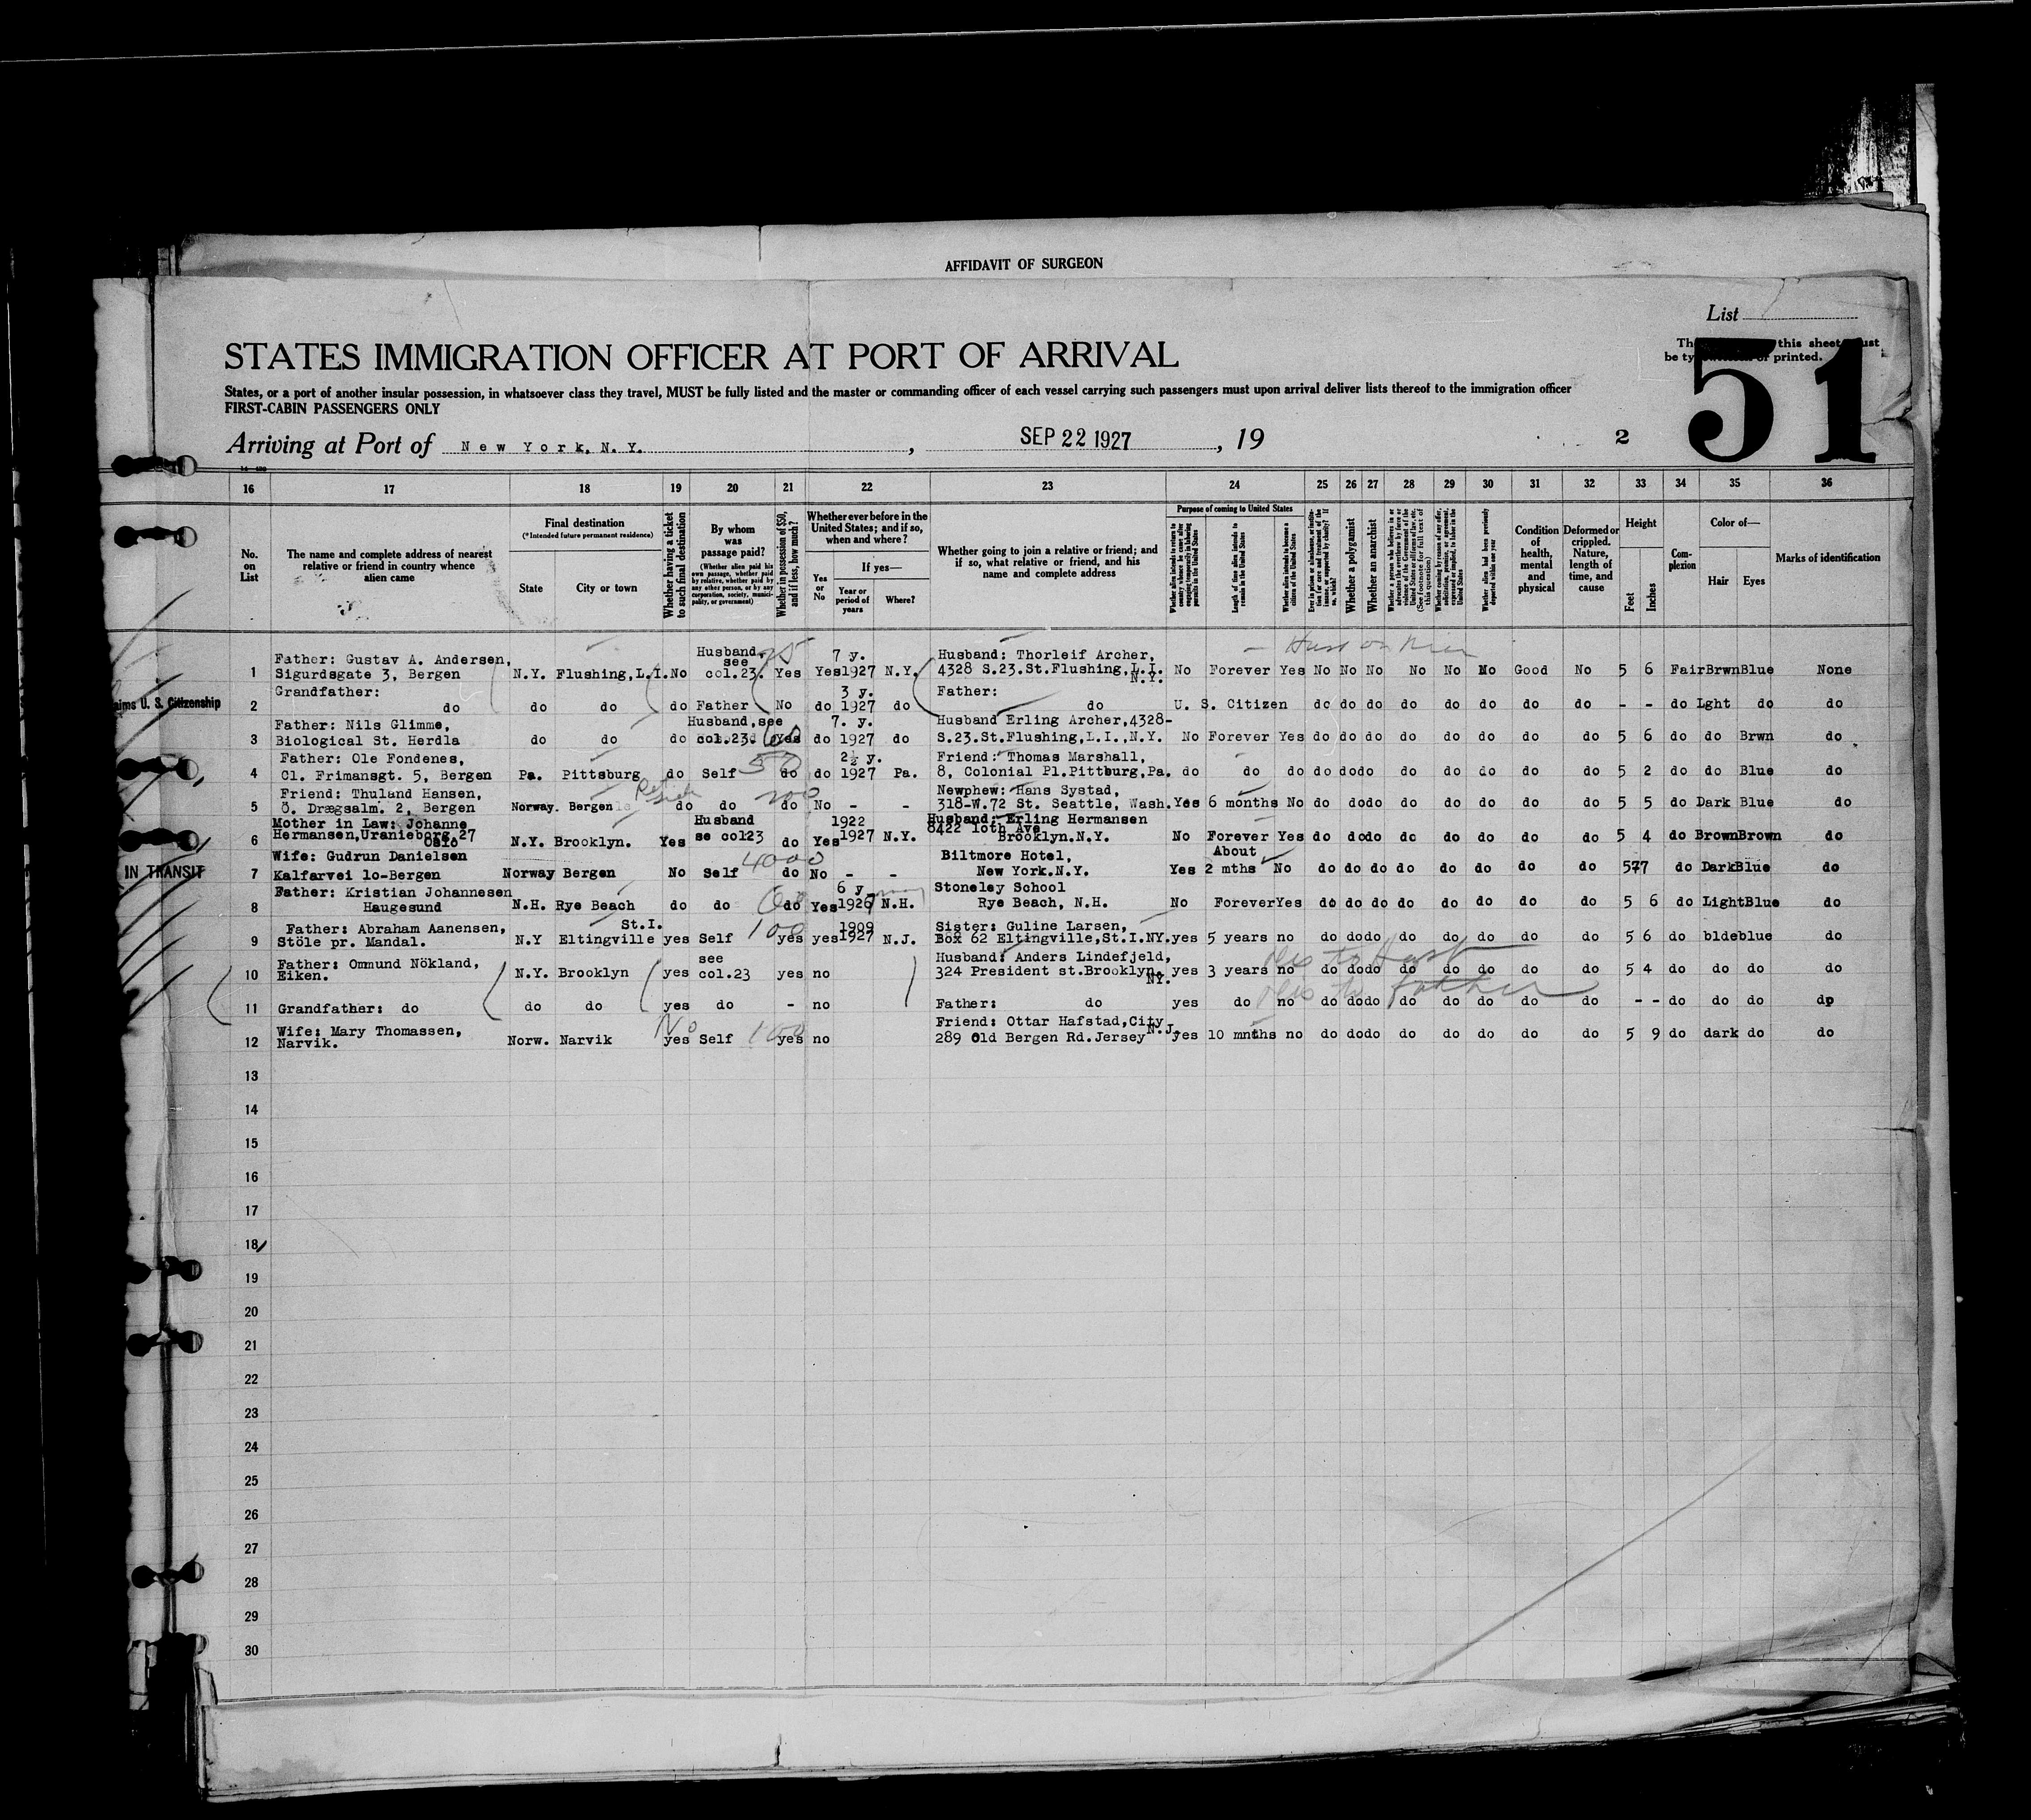 AFFIDAVIT OF SURGEON
List
STATES IMMIGRATION OFFICER AT PORT OF ARRIVAL
this sheet must
be typewritten or printed.
51
States, or a port of another insular possession, in whatsoever class they travel, MUST be fully listed and the master or commanding officer of each vessel carrying such passengers must upon arrival deliver lists thereof to the immigration officer
FIRST-CABIN PASSENGERS ONLY
Arriving at Port of New York, N. Y. , SEP 22 1927 , 19 2
16 17 18 19 20 21 22 23 24 25 26 27 28 29 30 31 32 33 34 35 36
No. on List
The name and complete address of nearest relative or friend in country whence alien came
Final destination
(*Intended future permanent residence)
State City or town
Whether having a ticket to such final destination
By whom was passage paid?
(Whether alien paid his own passage, whether paid by relative, whether paid by any other person, or by any corporation, society, municipality, or government)
Whether in possession of $50, and if less, how much?
Whether ever before in the United States; and if so, when and where?
Yes or No
If yes—
Year or period of years Where?
Whether going to join a relative or friend; and if so, what relative or friend, and his name and complete address
Purpose of coming to United States
Length of time alien intends to remain in the United States
Whether alien intends to become a citizen of the United States
Whether a polygamist
Whether an anarchist
Whether alien had been previously deported within one year
Condition of health, mental and physical
Deformed or crippled. Nature, length of time, and cause
Height
Feet Inches
Complexion
Color of—
Hair Eyes
Marks of identification
1 Father: Gustav A. Andersen, Sigurdsgate 3, Bergen N.Y. Flushing, L.I. No Husband, see col.23. 75 Yes Yes 7 y. 1927 N.Y. Husband: Thorleif Archer, 4328 S.23.St.Flushing,L.I. N.Y. No Forever Yes No No No No No No Good No 5 6 Fair Brwn Blue None
U. S. Citizenship
2 Grandfather: do do do do Father No do 3 y. 1927 do Father: do U. S. Citizen do do do do do do do do - - do Lght do do
3 Father: Nils Glimme, Biological St. Herdla do do do Husband, see col.23. 60 Yes do 7. y. 1927 do Husband Erling Archer,4328-S.23.St.Flushing,L.I.,N.Y. No Forever Yes do do do do do do do do 5 6 do do Brwn do
4 Father: Ole Fondenes, Cl. Frimansgt. 5, Bergen Pa. Pittsburg do Self 50 do do 2½ y. 1927 Pa. Friend: Thomas Marshall, 8, Colonial Pl.Pittburg,Pa. do do do do do do do do do do do 5 2 do do Blue do
5 Friend: Thuland Hansen, Ö. Drægsalm. 2, Bergen Norway. Bergen do do 200 do No - - Newphew: Hans Systad, 318-W.72 St. Seattle, Wash. Yes 6 months No do do do do do do do do 5 5 do Dark Blue do
6 Mother in Law: Johanne Hermansen,Uranieborg 27 Oslo N.Y. Brooklyn. Yes Husband se col23 do Yes 1922 1927 N.Y. Husband: Erling Hermansen 8422 10th Ave Brooklyn.N.Y. No Forever Yes do do do do do do do do 5 4 do Brown Brown do
IN TRANSIT
7 Wife: Gudrun Danielsen Kalfarvei 10-Bergen Norway Bergen No Self 4000 do No - - Biltmore Hotel, New York.N.Y. Yes About 2 mths No do do do do do do do do 5 7 do Dark Blue do
8 Father: Kristian Johannesen Haugesund N.H. Rye Beach do do do Yes 6 y 1926 N.H. Stoneley School Rye Beach, N.H. No Forever Yes do do do do do do do do 5 6 do Light Blue do
9 Father: Abraham Aanensen, Stöle pr. Mandal. N.Y Eltingville St.I. yes Self 100 yes yes 1909 1927 N.J. Sister: Guline Larsen, Box 62 Eltingville,St.I.NY. yes 5 years no do do do do do do do do 5 6 do blde blue do
10 Father: Ommund Nökland, Eiken. N.Y. Brooklyn yes see col.23 yes no Husband: Anders Lindefjeld, 324 President st.Brooklyn. NY. yes 3 years no do do do do do do do do 5 4 do do do do
11 Grandfather: do do do yes do - no Father: do yes do no do do do do do do do do - - do do do do
12 Wife: Mary Thomassen, Narvik. Norw. Narvik No yes Self 100 yes no Friend: Ottar Hafstad,City 289 Old Bergen Rd.Jersey N.J. yes 10 mnths no do do do do do do do do 5 9 do dark do do
13
14
15
16
17
18
19
20
21
22
23
24
25
26
27
28
29
30